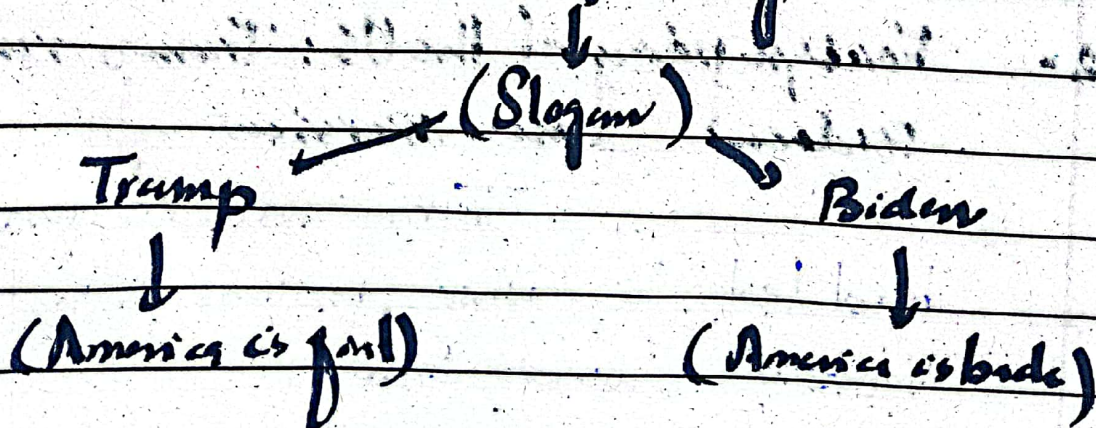 (Slogan)
Trump
Biden
(America is first)
(America is back)